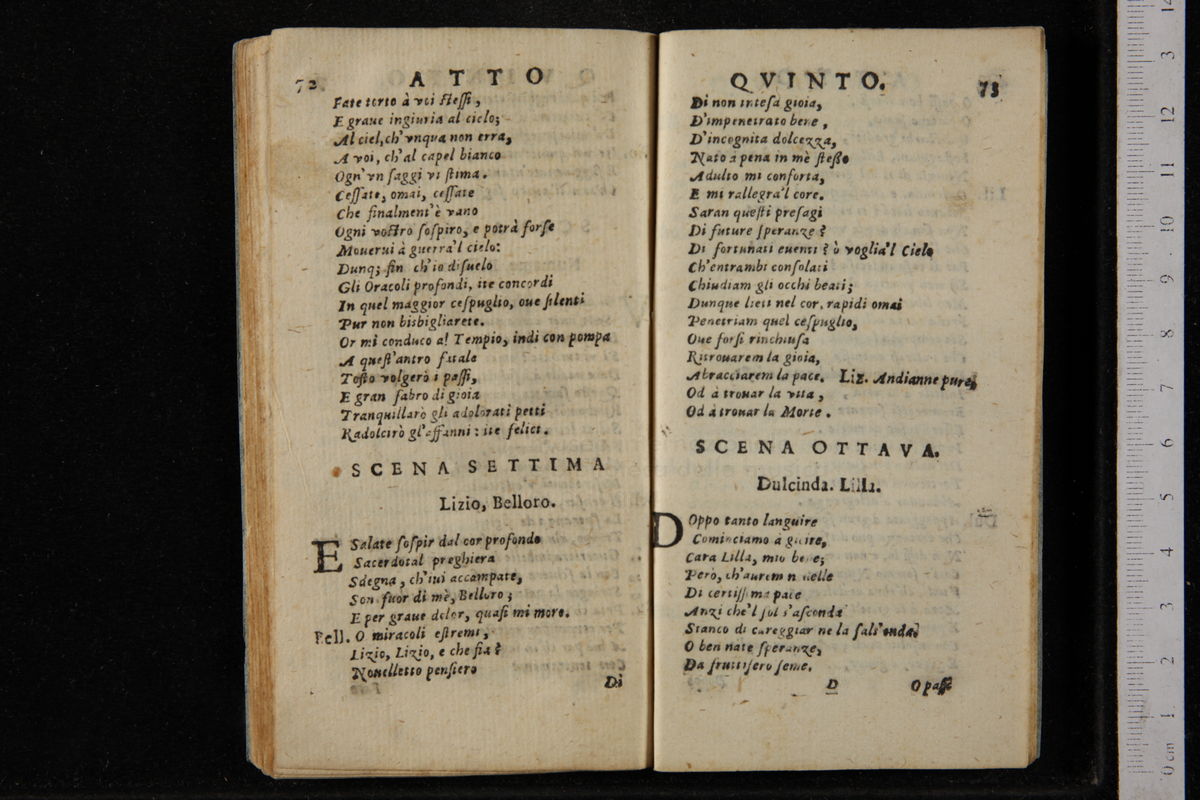 72 ATTO
Fate torto à voi stessi,
E graue ingiuria al cielo;
Al ciel, ch'vnqua non erra,
A voi, ch'al capel bianco
Ogn'vn saggi vi stima.
Cessate, omai, cessate
Che finalment'è vano
Ogni vostro sospiro, e potrà forse
Mouerui à guerra'l cielo:
Dunq; fin ch'io disuelo
Gli Oracoli profondi, ite concordi
In quel maggior cespuglio, oue silenti
Pur non bisbigliarete.
Or mi conduco al Tempio, indi con pompa
A quest'antro fatale
Tosto volgerò i passi,
E gran fabro di gioia
Tranquillarò gli adolorati petti
Radolcirò gl'affanni: ite felici.
SCENA SETTIMA
Lizio, Belloro.
ESalate sospir dal cor profondo
Sacerdotal preghiera
Sdegna, ch'iui accampate,
Son fuor di mè, Belloro;
E per graue dolor, quasi mi moro.
Bell. O miracoli estremi,
Lizio, Lizio, e che sia?
Nouelletto pensiero
Di
QVINTO. 73
Di non intesa gioia,
D'impenetrato bene,
D'incognita dolcezza,
Nato a pena in mè stesso
Adulto mi conforta,
E mi rallegra'l core.
Saran questi presagi
Di future speranze?
Di fortunati euenti? ò voglia'l Cielo
Ch'entrambi consolati
Chiudiam gli occhi beati;
Dunque lieti nel cor, rapidi omai
Penetriam quel cespuglio,
Oue forsi rinchiusa
Ritrouarem la gioia,
Abracciarem la pace. Liz. Andianne pure,
Od à trouar la vita,
Od à trouar la Morte.
SCENA OTTAVA.
Dulcinda. Lilla.
DOppo tanto languire
Cominciamo a gioire,
Cara Lilla, mio bene;
Però, ch'aurem nouelle
Di certissima pace
Anzi che'l sol s'asconda
Stanco di careggiar ne la sals'onda?
O ben nate speranze,
Da fruttifero seme.
D O passi